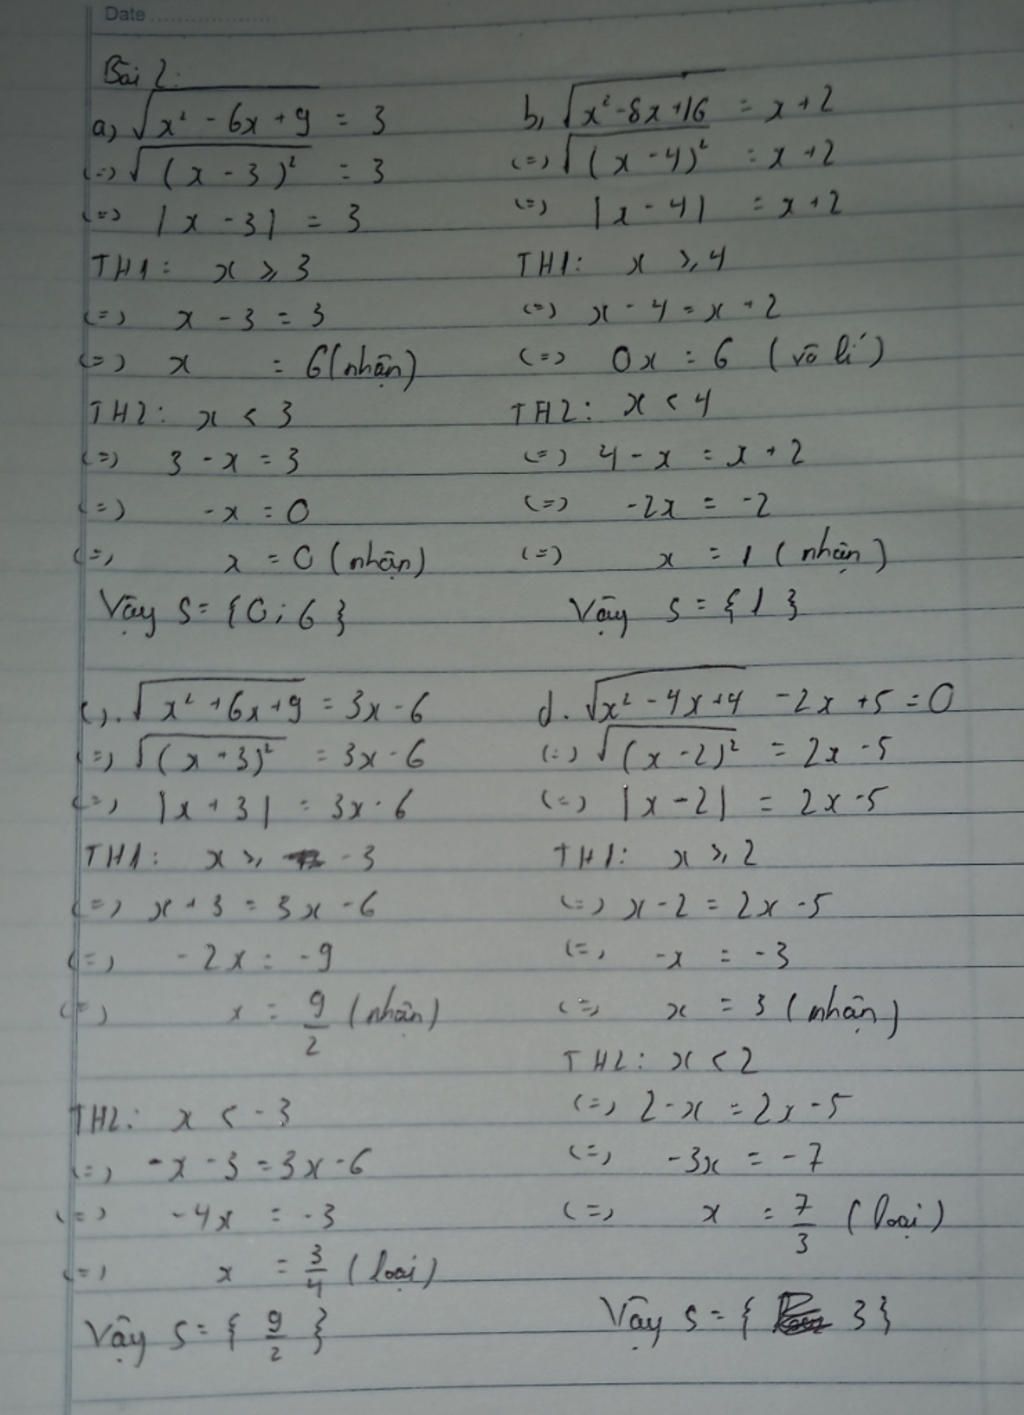 Date
Bài 2:
a, √(x² - 6x + 9) = 3
(=) √((x - 3)²) = 3
(=) |x - 3| = 3
TH1: x ⩾ 3
(=) x - 3 = 3
(=) x = 6 (nhận)
TH2: x < 3
(=) 3 - x = 3
(=) -x = 0
(=) x = 0 (nhận)
Vậy S = {0; 6}
b, √(x² - 8x + 16) = x + 2
(=) √((x - 4)²) = x + 2
(=) |x - 4| = x + 2
TH1: x ⩾ 4
(=) x - 4 = x + 2
(=) 0x = 6 (vô lí)
TH2: x < 4
(=) 4 - x = x + 2
(=) -2x = -2
(=) x = 1 (nhận)
Vậy S = {1}
c). √(x² + 6x + 9) = 3x - 6
(=) √((x + 3)²) = 3x - 6
(=) |x + 3| = 3x - 6
TH1: x ⩾ -3
(=) x + 3 = 3x - 6
(=) -2x = -9
(=) x = 9/2 (nhận)
TH2: x < -3
(=) -x - 3 = 3x - 6
(=) -4x = -3
(=) x = 3/4 (loại)
Vậy S = {9/2}
d. √(x² - 4x + 4) - 2x + 5 = 0
(=) √((x - 2)²) = 2x - 5
(=) |x - 2| = 2x - 5
TH1: x ⩾ 2
(=) x - 2 = 2x - 5
(=) -x = -3
(=) x = 3 (nhận)
TH2: x < 2
(=) 2 - x = 2x - 5
(=) -3x = -7
(=) x = 7/3 (loại)
Vậy S = {3}